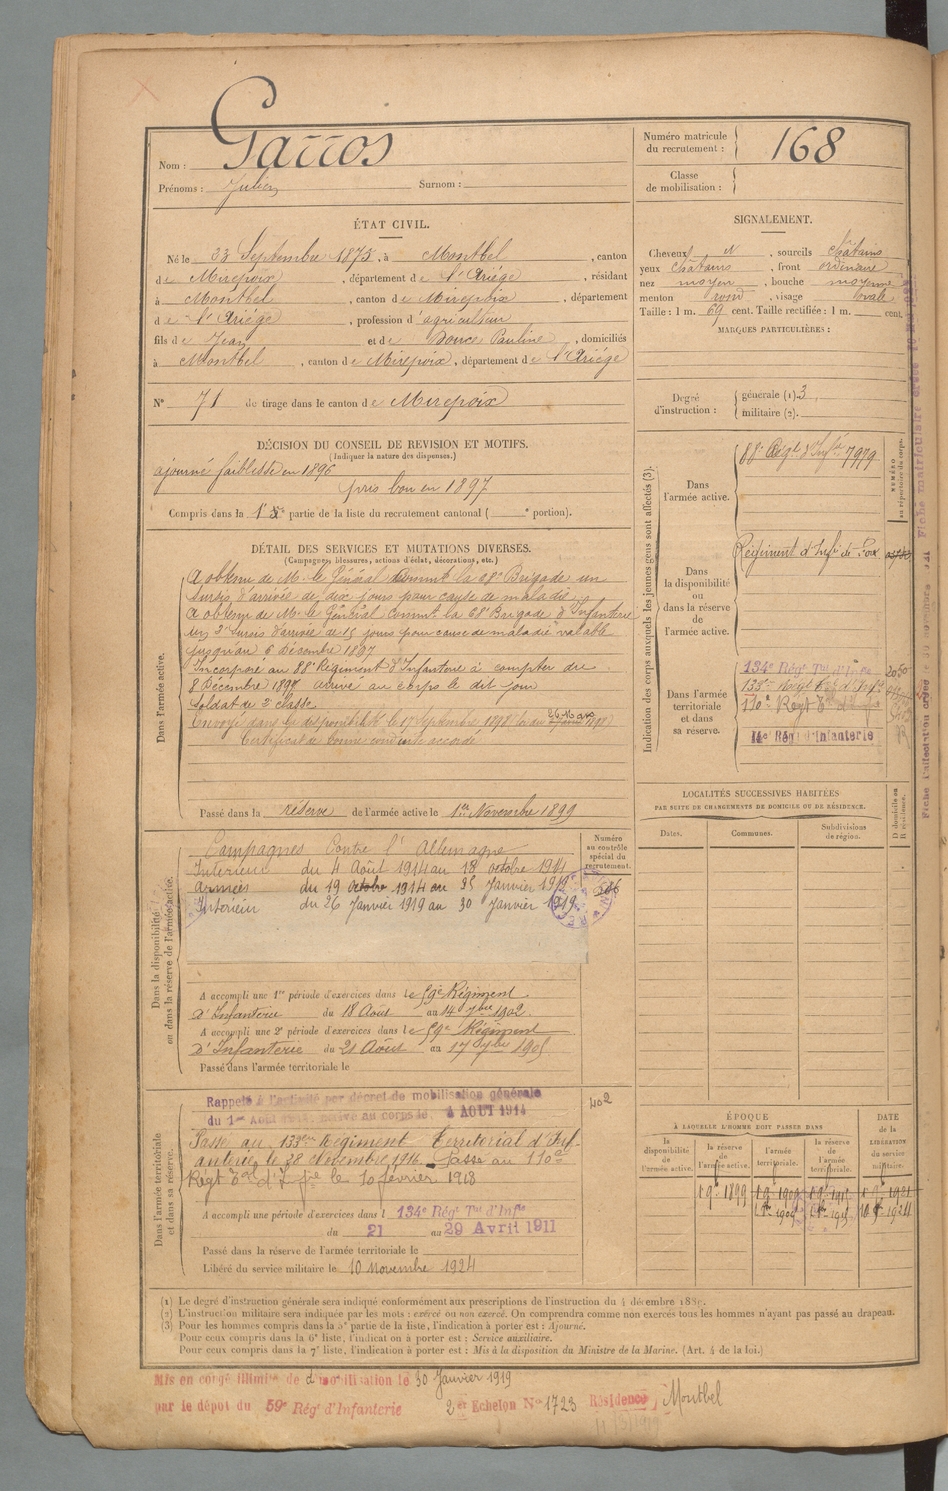 Nom : Garros
Prénoms : Julien Surnom :
Numéro matricule du recrutement : 168
Classe de mobilisation :
ÉTAT CIVIL.
Né le 23 Septembre 1875, à Montbel, canton
de Mirepoix, département de l'Ariége, résidant
à Montbel, canton de Mirepoix, département
de l'Ariége, profession d'agriculteur
fils de Jean et de Douce Pauline, domiciliés
à Montbel, canton de Mirepoix, département de l'Ariége
N° 71 de tirage dans le canton de Mirepoix
DÉCISION DU CONSEIL DE REVISION ET MOTIFS.
(Indiquer la nature des dispenses.)
ajourné faiblesse en 1896
pris bon en 1897
Compris dans la partie de la liste du recrutement cantonal ( ° portion).
DÉTAIL DES SERVICES ET MUTATIONS DIVERSES.
(Campagnes, blessures, actions d'éclat, décorations, etc.)
Dans l'armée active.
A obtenu de Mr le Général Commt la 68e Brigade un
sursis d'arrivée de dix jours pour cause de maladie
A obtenu de Mr le Général Commt la 68e Brigade d'Infanterie
un 2e sursis d'arrivée de 15 jours pour cause de maladie valable
jusqu'au 6 Décembre 1897
Incorporé au 88e Régiment d'Infanterie à compter du
8 Décembre 1897 arrivé au corps le dit jour
Soldat de 2e classe
Envoyé dans la disponibilité le 17 Septembre 1898
Certificat de bonne conduite accordé
Passé dans la réserve de l'armée active le 1er Novembre 1899
Dans la disponibilité ou dans la réserve de l'armée active.
Numéro au contrôle spécial du recrutement.
Campagnes Contre l'Allemagne
Intérieur du 4 Août 1914 au 18 octobre 1914
Armées du 19 octobre 1914 au 25 Janvier 1919
Intérieur du 26 Janvier 1919 au 30 Janvier 1919
A accompli une 1re période d'exercices dans le 59e Régiment
d'Infanterie du 18 Août au 14 7bre 1902
A accompli une 2e période d'exercices dans le 59e Régiment
d'Infanterie du 21 Août au 17 7bre 1905
Passé dans l'armée territoriale le
Dans l'armée territoriale et dans sa réserve.
402
Rappelé à l'activité par décret de mobilisation générale
du 1er Août 1914. arrivé au corps le 4 AOUT 1914
Passé au 133e Régiment Territorial d'Inf-
anterie le 28 Novembre 1916. Passe au 110e
Régt Tal d'Inf.rie le 10 février 1918
A accompli une période d'exercices dans l 134e Régt Tal d'Infie
du 21 au 29 Avril 1911
Passé dans la réserve de l'armée territoriale le
Libéré du service militaire le 10 Novembre 1924
SIGNALEMENT.
Cheveux N, sourcils châtains
yeux châtains, front ordinaire
nez moyen, bouche moyenne
menton rond, visage ovale
Taille : 1 m. 69 cent. Taille rectifiée : 1 m. cent.
MARQUES PARTICULIÈRES :
Degré d'instruction : générale (1) 3
militaire (2).
Indication des corps auxquels les jeunes gens sont affectés (3).
NUMÉRO au répertoire du corps.
Dans l'armée active. 88e Régt d'Infie 7979
Dans la disponibilité ou dans la réserve de l'armée active. Régiment d'Infie de Foix
Dans l'armée territoriale et dans sa réserve.
134e Régt Tal d'Infie
133e Régt Tal d'Infie
110e Régt Tal d'Infie
14e Régt d'Infanterie
LOCALITÉS SUCCESSIVES HABITÉES
PAR SUITE DE CHANGEMENTS DE DOMICILE OU DE RÉSIDENCE.
D domicile ou R résidence.
Dates. Communes. Subdivisions de région.
ÉPOQUE
À LAQUELLE L'HOMME DOIT PASSER DANS
DATE de la LIBÉRATION du service militaire.
la disponibilité de l'armée active. la réserve de l'armée active. l'armée territoriale. la réserve de l'armée territoriale.
(1) Le degré d'instruction générale sera indiqué conformément aux prescriptions de l'instruction du 4 décembre 1889.
(2) L'instruction militaire sera indiquée par les mots : exercé ou non exercé. On comprendra comme non exercés tous les hommes n'ayant pas passé au drapeau.
(3) Pour les hommes compris dans la 5e partie de la liste, l'indication à porter est : Ajourné.
Pour ceux compris dans la 6e liste, l'indication à porter est : Service auxiliaire.
Pour ceux compris dans la 7e liste, l'indication à porter est : Mis à la disposition du Ministre de la Marine. (Art. 4 de la loi.)
Mis en congé illimité de démobilisation le 30 Janvier 1919
par le dépot du 59e Régt d'Infanterie 2e Echelon N° 1723 Résidence Montbel